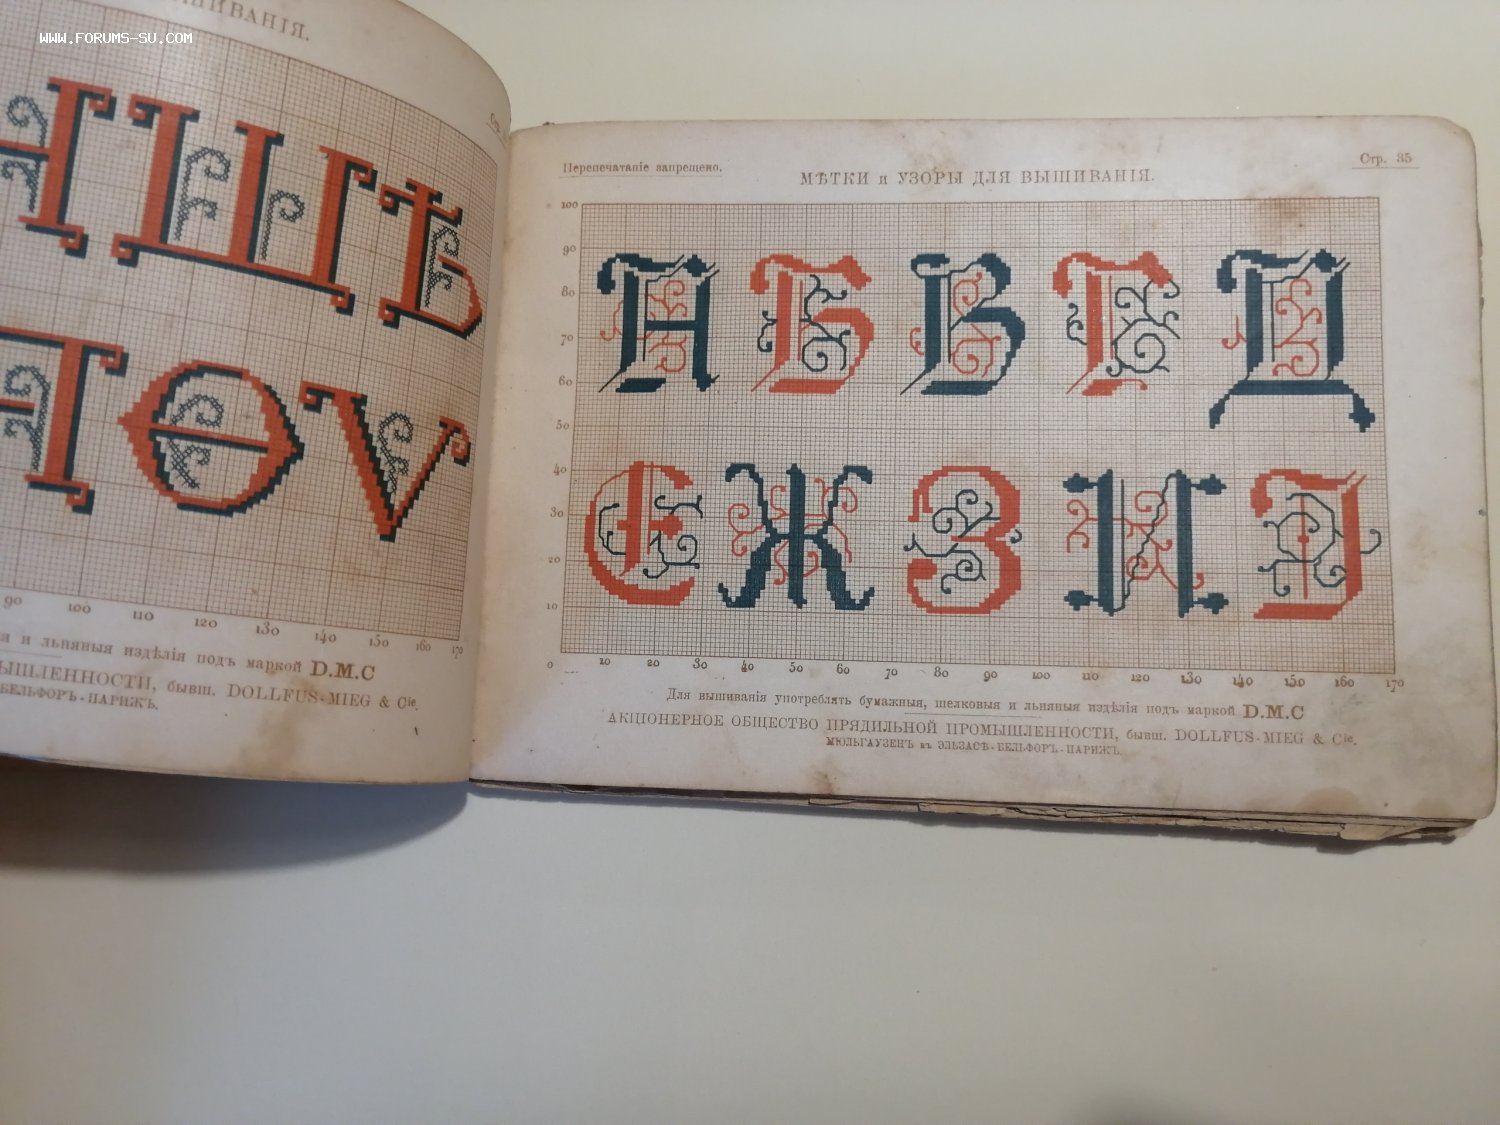 WWW.FORUMS-SU.COM
Ш Ъ
Ѳ Ѵ
90 100 110 120 130 140 150 160 170
и льняныя издѣлія подъ маркой D.M.C
бывш. DOLLFUS-MIEG & Cie.
БЕЛЬФОРЪ-ПАРИЖЪ.
Перепечатаніе запрещено.
МѢТКИ и УЗОРЫ ДЛЯ ВЫШИВАНІЯ.
Стр. 35
100
90
80
70
60
50
40
30
20
10
А Б В Г Д
Е Ж З И І
0 10 20 30 40 50 60 70 80 90 100 110 120 130 140 150 160 170
Для вышиванія употреблять бумажныя, шелковыя и льняныя издѣлія подъ маркой D.M.C
АКЦІОНЕРНОЕ ОБЩЕСТВО ПРЯДИЛЬНОЙ ПРОМЫШЛЕННОСТИ, бывш. DOLLFUS-MIEG & Cie.
МЮЛЬГАУЗЕНЪ въ ЭЛЬЗАСѢ-БЕЛЬФОРЪ-ПАРИЖЪ.